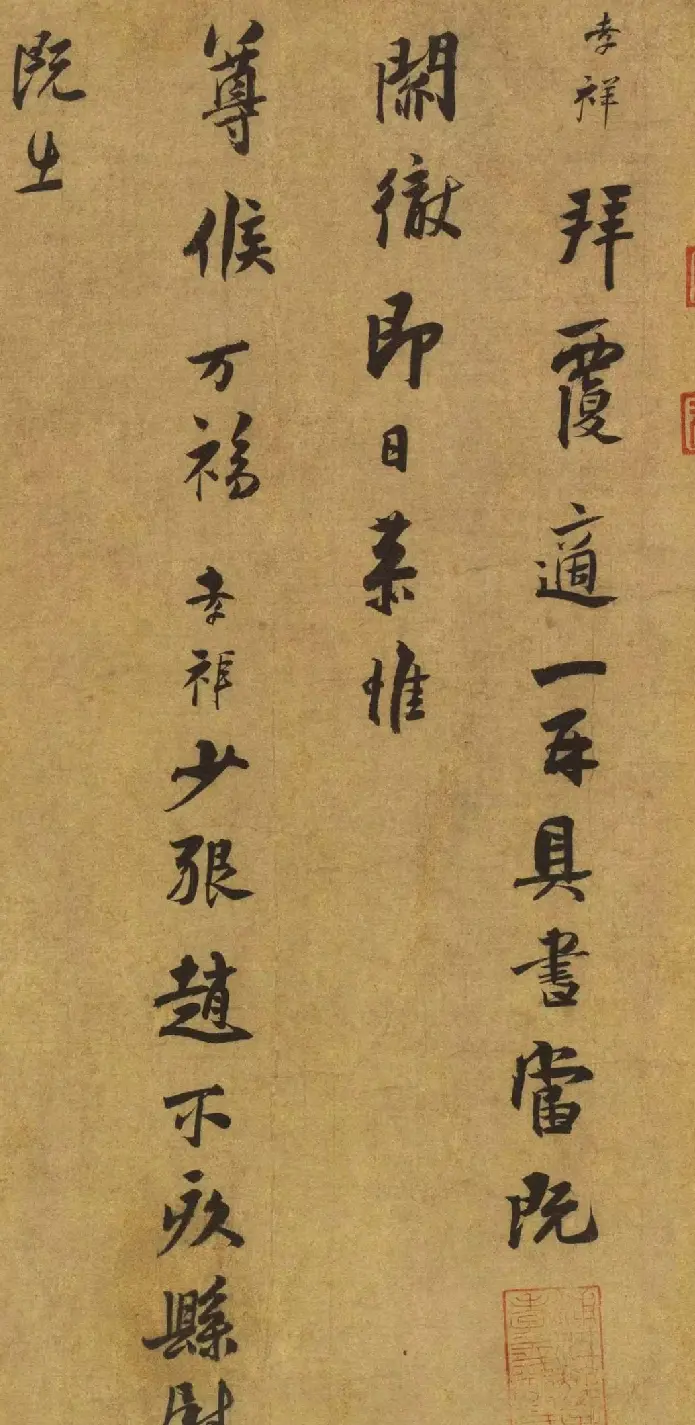 孝祥拜覆適一再具書當既
關徹即日恭惟
尊候万福孝祥少張趙不疚縣尉
既生